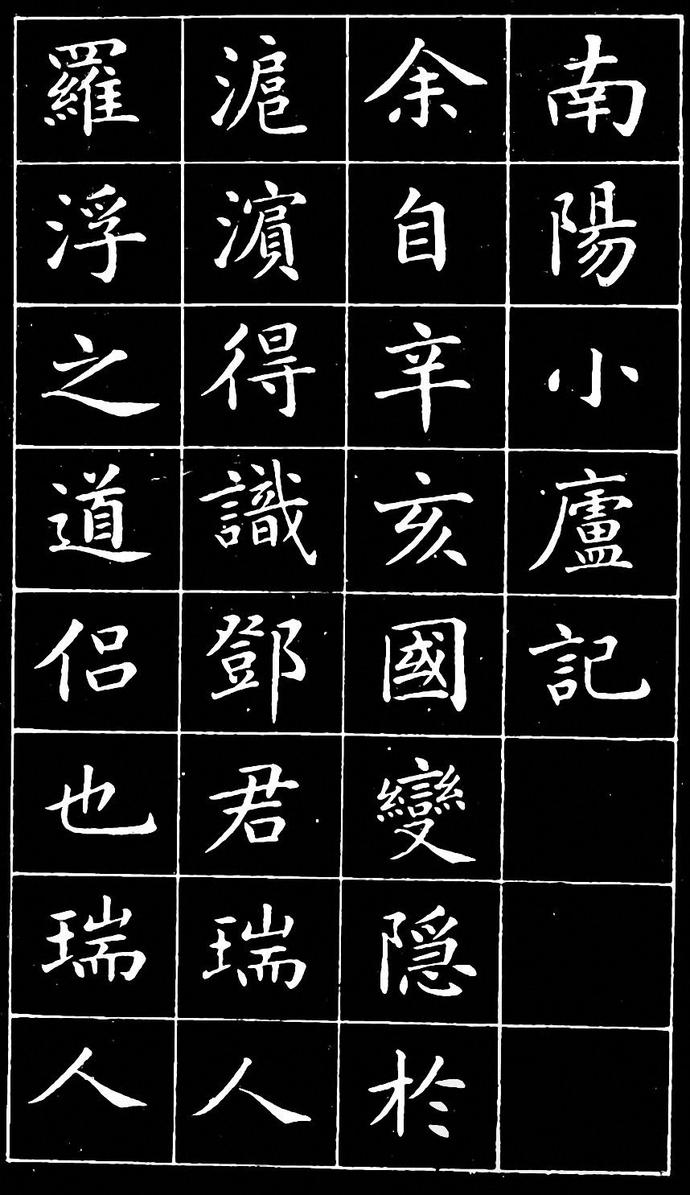 南陽小廬記
余自辛亥國變隱於
滬濵得識鄧君瑞人
羅浮之道侶也瑞人